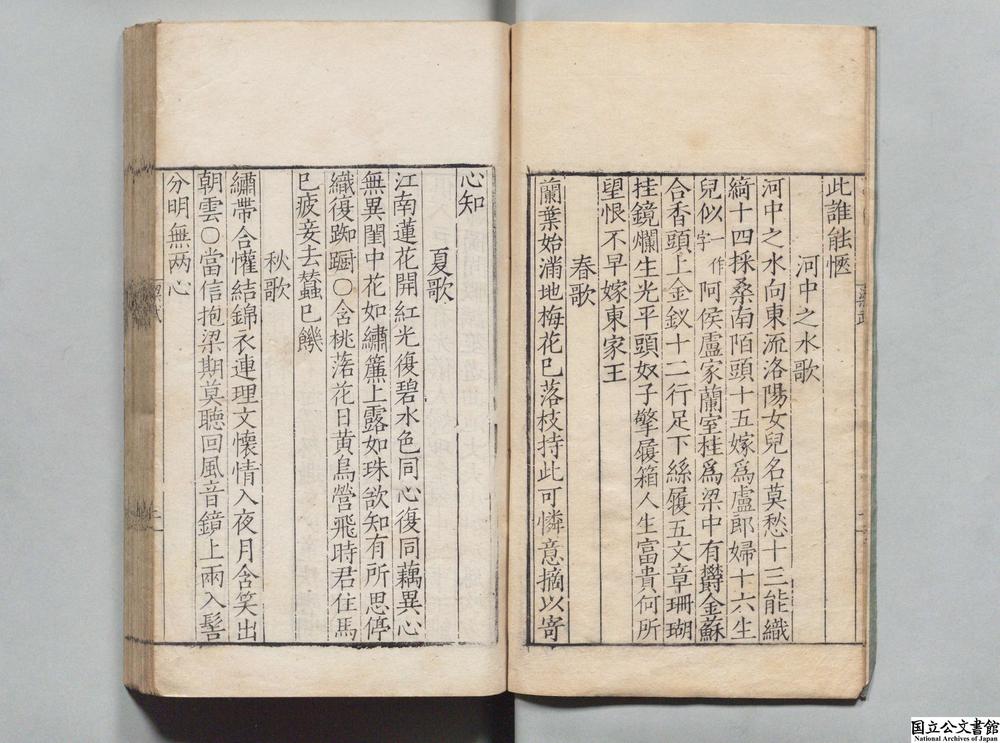 此誰能愜
河中之水歌
河中之水向東流洛陽女兒名莫愁十三能織
綺十四採桑南陌頭十五嫁爲盧郎婦十六生
兒似一作字阿侯盧家蘭室桂爲梁中有欝金蘇
合香頭上金釵十二行足下絲履五文章珊瑚
桂鏡爛生光平頭奴子擎履箱人生富貴何所
望恨不早嫁東家王
春歌
蘭葉始滿地梅花已落枝持此可憐意摘以寄
心知
夏歌
江南蓮花開紅光復碧水色同心復同藕異心
無異閨中花如繡簾上露如珠欲知有所思停
織復踟躕○含桃落花日黄鳥營飛時君住馬
已疲妾去蠶已饑
秋歌
繡帶合懽結錦衣連理文懷情入夜月含笑出
朝雲○當信抱梁期莫聽回風音鏡上兩入髻
分明無两心
梁武
二
三
国立公文書館
National Archives of Japan